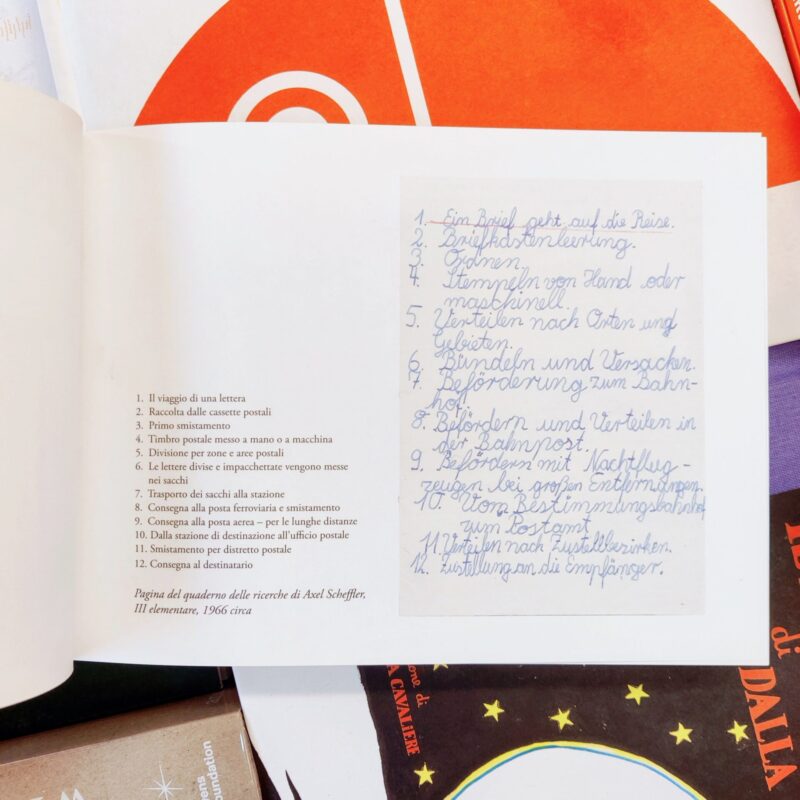 1. Il viaggio di una lettera
2. Raccolta dalle cassette postali
3. Primo smistamento
4. Timbro postale messo a mano o a macchina
5. Divisione per zone e aree postali
6. Le lettere divise e impacchettate vengono messe
nei sacchi
7. Trasporto dei sacchi alla stazione
8. Consegna alla posta ferroviaria e smistamento
9. Consegna alla posta aerea – per le lunghe distanze
10. Dalla stazione di destinazione all'ufficio postale
11. Smistamento per distretto postale
12. Consegna al destinatario
Pagina del quaderno delle ricerche di Axel Scheffler,
III elementare, 1966 circa
1. Ein Brief geht auf die Reise.
2. Briefkastenleerung.
3. Ordnen
4. Stempeln von Hand oder
maschinell.
5. Verteilen nach Orten und
Gebieten.
6. Bündeln und Versacken.
7. Beförderung zum Bahn-
hof.
8. Befördern und Verteilen in
der Bahnpost.
9. Befördern mit Nachtflug-
zeugen bei großen Entfernungen.
10. Vom Bestimmungsbahnhof
zum Postamt
11 Verteilen nach Zustellbezirken.
12. Zustellung an die Empfänger.
di
DALLA
di
CAVALIERE
oundation